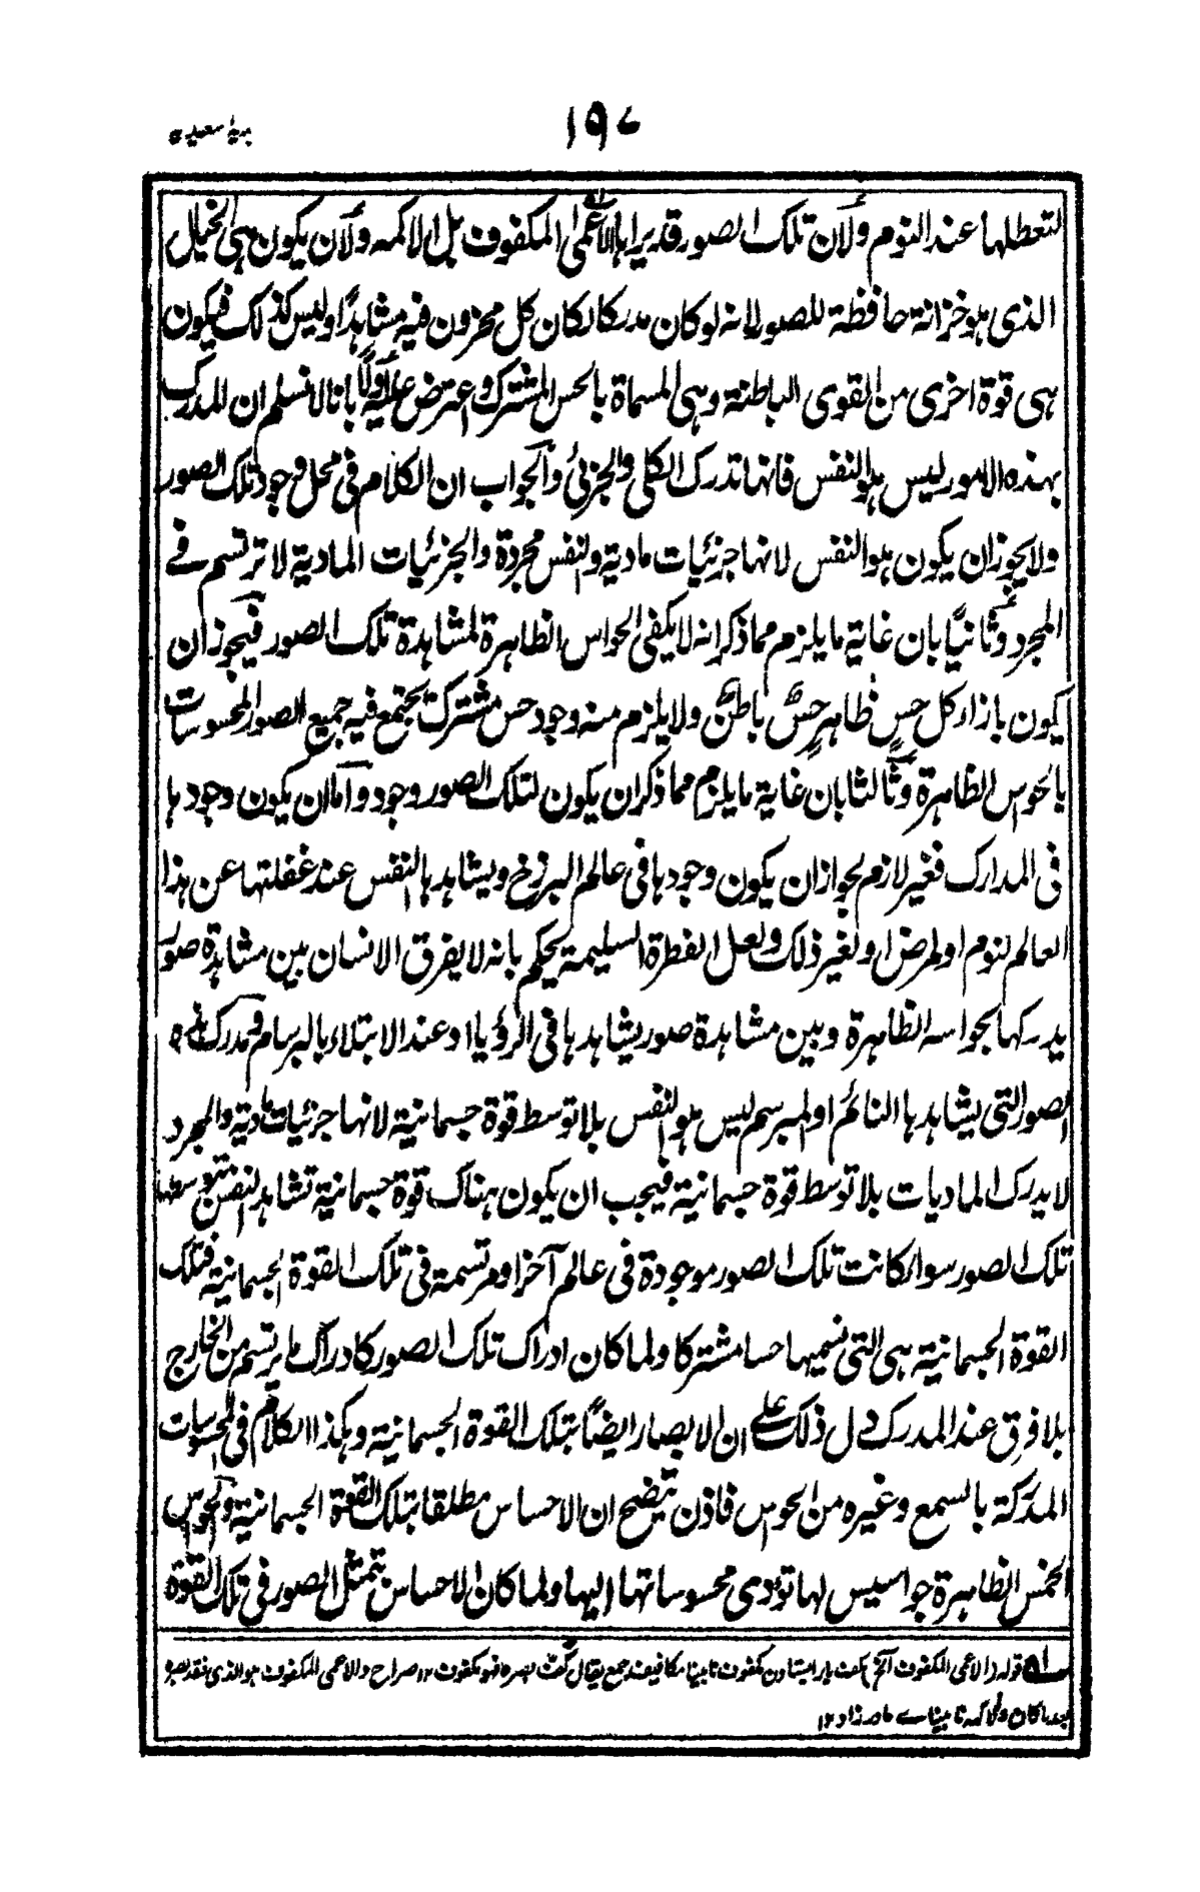 ١٩٧
ہدیۂ سعیدیہ
لتعطلها عند النوم ولان تلك الصور قد يراها الاعمى المكفوف بل الاكمه ولان يكون هى الخيال
الذى هو خزانة حافظة للصور لانه لو كان مدركا لكان كل مخزون فيه مشاهدًا وليس كذلك فيكون
هى قوة اخرى من القوى الباطنة وهى المسماة بالحس المشترك واعترض عليه اولًا بانا لانسلم ان المدرك
بهذه الامور ليس هو النفس فانها تدرك الكلى والجزئى والجواب ان الكلام فى محل وجود تلك الصور
ولا يجوز ان يكون هو النفس لانها جزئيات مادية والنفس مجردة والجزئيات المادية لا ترتسم فے
المجرد وثانيًا بان غاية ما يلزم مما ذكر انه لا يكفى الحواس الظاهرة لمشاهدة تلك الصور فيجوز ان
يكون بازاء كل حسٍ ظاهرٍ حسٌ باطنٌ ولا يلزم منه وجود حس مشترك يجتمع فيه جميع الصور المحسوسات
بالحواس الظاهرة وثالثا بان غاية ما يلزم مما ذكر ان يكون لتلك الصور وجود واما ان يكون وجودها
فى المدارك فغير لازم لجواز ان يكون وجودها فى عالم البرزخ ويشاهدها النفس عند غفلتها عن هذا
العالم لنوم او لمرض او لغير ذلك ولعل الفطرة السليمة يحكم بانه لا يفرق الانسان بين مشاهدة صور
يدركها بحواسه الظاهرة وبين مشاهدة صور يشاهدها فى الرؤيا او عند الابتلاء بالبرسام ومدرك هذه
الصور التى يشاهدها النائم او المبرسم ليس هو النفس بلا توسط قوة جسمانية لانها جزئيات مادية والمجرد
لا يدرك الماديات بلا توسط قوة جسمانية فيجب ان يكون هناك قوة جسمانية تشاهد النفس بتوسطها
تلك الصور سواء كانت تلك الصور موجودة فى عالم آخر او مرتسمة فى تلك القوة الجسمانية فتلك
القوة الجسمانية هى التى نسميها حسا مشتركا ولما كان ادراك تلك الصور كادراك ما يرتسم من الخارج
بلا فرق عند المدرك دل ذلك على ان الابصار ايضًا بتلك القوة الجسمانية وهكذا الكلام فى المحسوسات
المدركة بالسمع وغيره من الحواس فاذن يتضح ان الاحساس مطلقا بتلك القوة الجسمانية والحواس
الخمس الظاهرة جواسيس لها تؤدى محسوساتها اليها ولما كان الاحساس بتمثل الصور فى تلك القوة
ــه قوله (الاعمى المكفوف آلخ) كف باز ایستادن مكفوف نابینا مكافیف جمع یقال كف بصره فهو مكفوف ١٢ صراح والاعمى المكفوف هو الذى فقد بصره
بعد ما كان والاكمه نابیناے مادر زاد ١٢